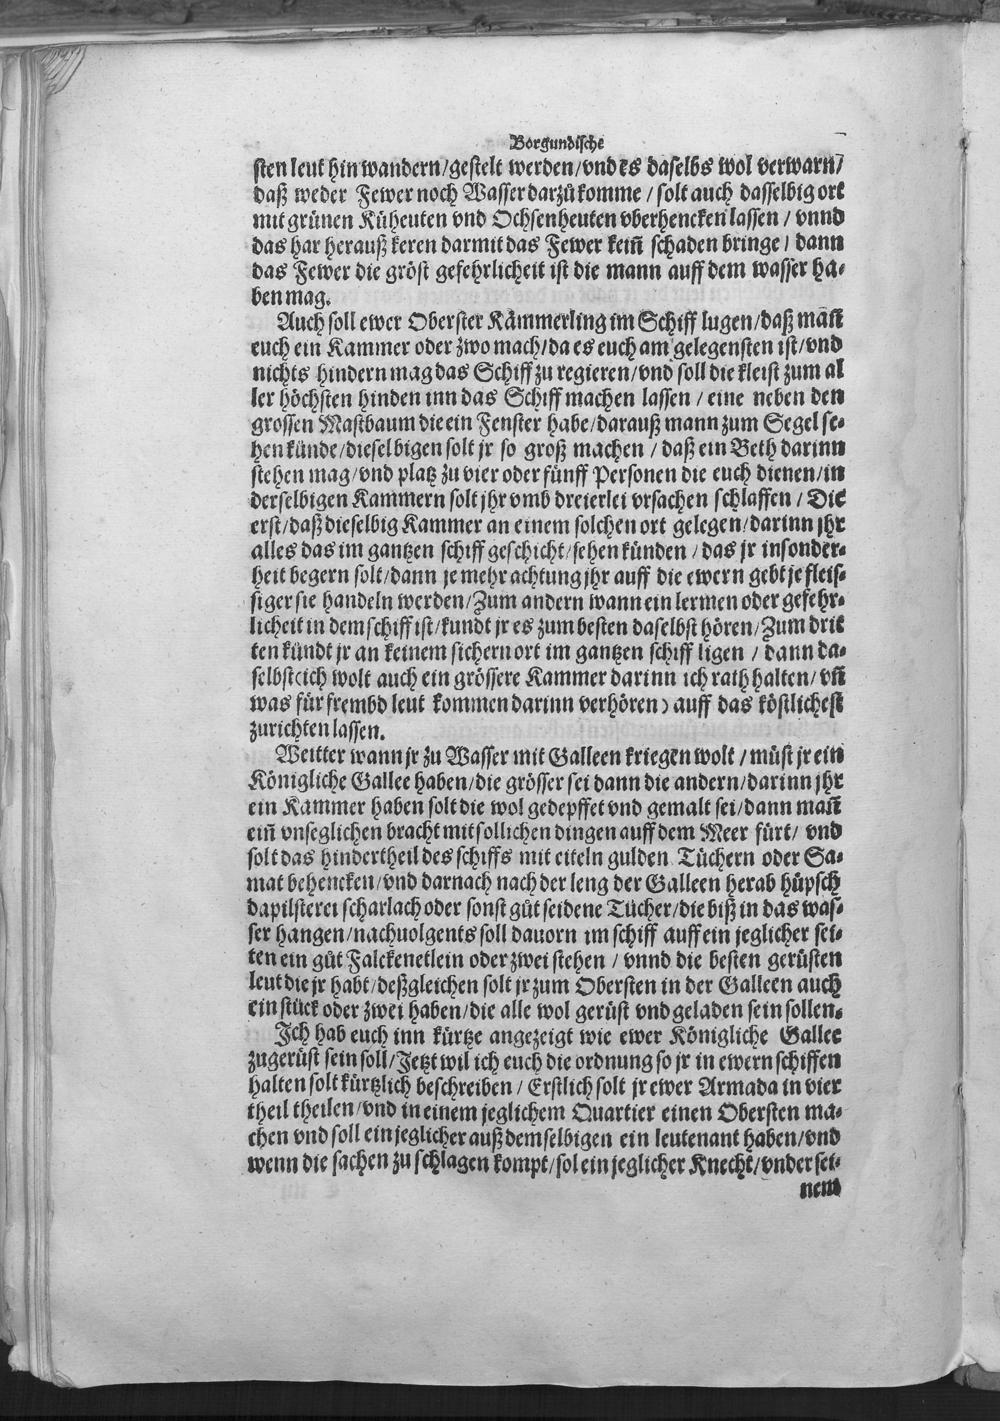 Borgundische
sten leut hin wandern/gestelt werden/vnd es daselbs wol verwarn/
daß weder Fewer noch Wasser darzů komme / solt auch dasselbig ort
mit grünen Küheuten vnd Ochsenheuten vberhencken lassen / vnnd
das har herauß keren darmit das Fewer kein̄ schaden bringe / dann
das Fewer die gröst gefehrlicheit ist die mann auff dem wasser ha⸗
ben mag.
Auch soll ewer Oberster Kämmerling im Schiff lugen/daß man̄
euch ein Kammer oder zwo mach/da es euch am gelegensten ist/vnd
nichts hindern mag das Schiff zu regieren/vnd soll die kleist zum al
ler höchsten hinden inn das Schiff machen lassen / eine neben den
grossen Mastbaum die ein Fenster habe/darauß mann zum Segel se⸗
hen künde/dieselbigen solt jr so groß machen / daß ein Beth darinn
stehen mag/vnd platz zu vier oder fünff Personen die euch dienen/in
derselbigen Kammern solt jhr vmb dreierlei vrsachen schlaffen / Die
erst/daß dieselbig Kammer an einem solchen ort gelegen/darinn jhr
alles das im gantzen schiff geschicht/sehen künden / das jr insonder⸗
heit begern solt/dann je mehr achtung jhr auff die ewern gebt je fleis⸗
siger sie handeln werden/Zum andern wann ein lermen oder gefehr⸗
licheit in dem schiff ist/kundt jr es zum besten daselbst hören/Zum drit
ten kündt jr an keinem sichern ort im gantzen schiff ligen / dann da⸗
selbst(ich wolt auch ein grössere Kammer darinn ich rath halten/vn̄
was für frembd leut kommen darinn verhören) auff das köstlichest
zurichten lassen.
Weitter wann jr zu Wasser mit Galleen kriegen wolt / müst jr ein
Königliche Gallee haben/die grösser sei dann die andern/darinn jhr
ein Kammer haben solt die wol gedepffet vnd gemalt sei/dann man̄
ein̄ vnseglichen bracht mit sollichen dingen auff dem Meer fürt/ vnd
solt das hindertheil des schiffs mit eiteln gulden Tüchern oder Sa⸗
mat behencken/vnd darnach nach der leng der Galleen herab hüpsch
dapilsterei scharlach oder sonst gůt seidene Tücher/die biß in das was⸗
ser hangen/nachuolgents soll dauorn im schiff auff ein jeglicher sei⸗
ten ein gůt Falckenetlein oder zwei stehen / vnnd die besten gerüsten
leut die jr habt/deßgleichen solt jr zum Obersten in der Galleen auch
ein stück oder zwei haben/die alle wol gerüst vnd geladen sein sollen.
Ich hab euch inn kürtze angezeigt wie ewer Königliche Gallee
zugerüst sein soll/Jetzt wil ich euch die ordnung so jr in ewern schiffen
halten solt kürtzlich beschreiben / Erstlich solt jr ewer Armada in vier
theil theilen/vnd in einem jeglichem Quartier einen Obersten ma⸗
chen vnd soll ein jeglicher auß demselbigen ein leutenant haben/vnd
wenn die sachen zu schlagen kompt/sol ein jeglicher Knecht/vnder sei⸗
nem